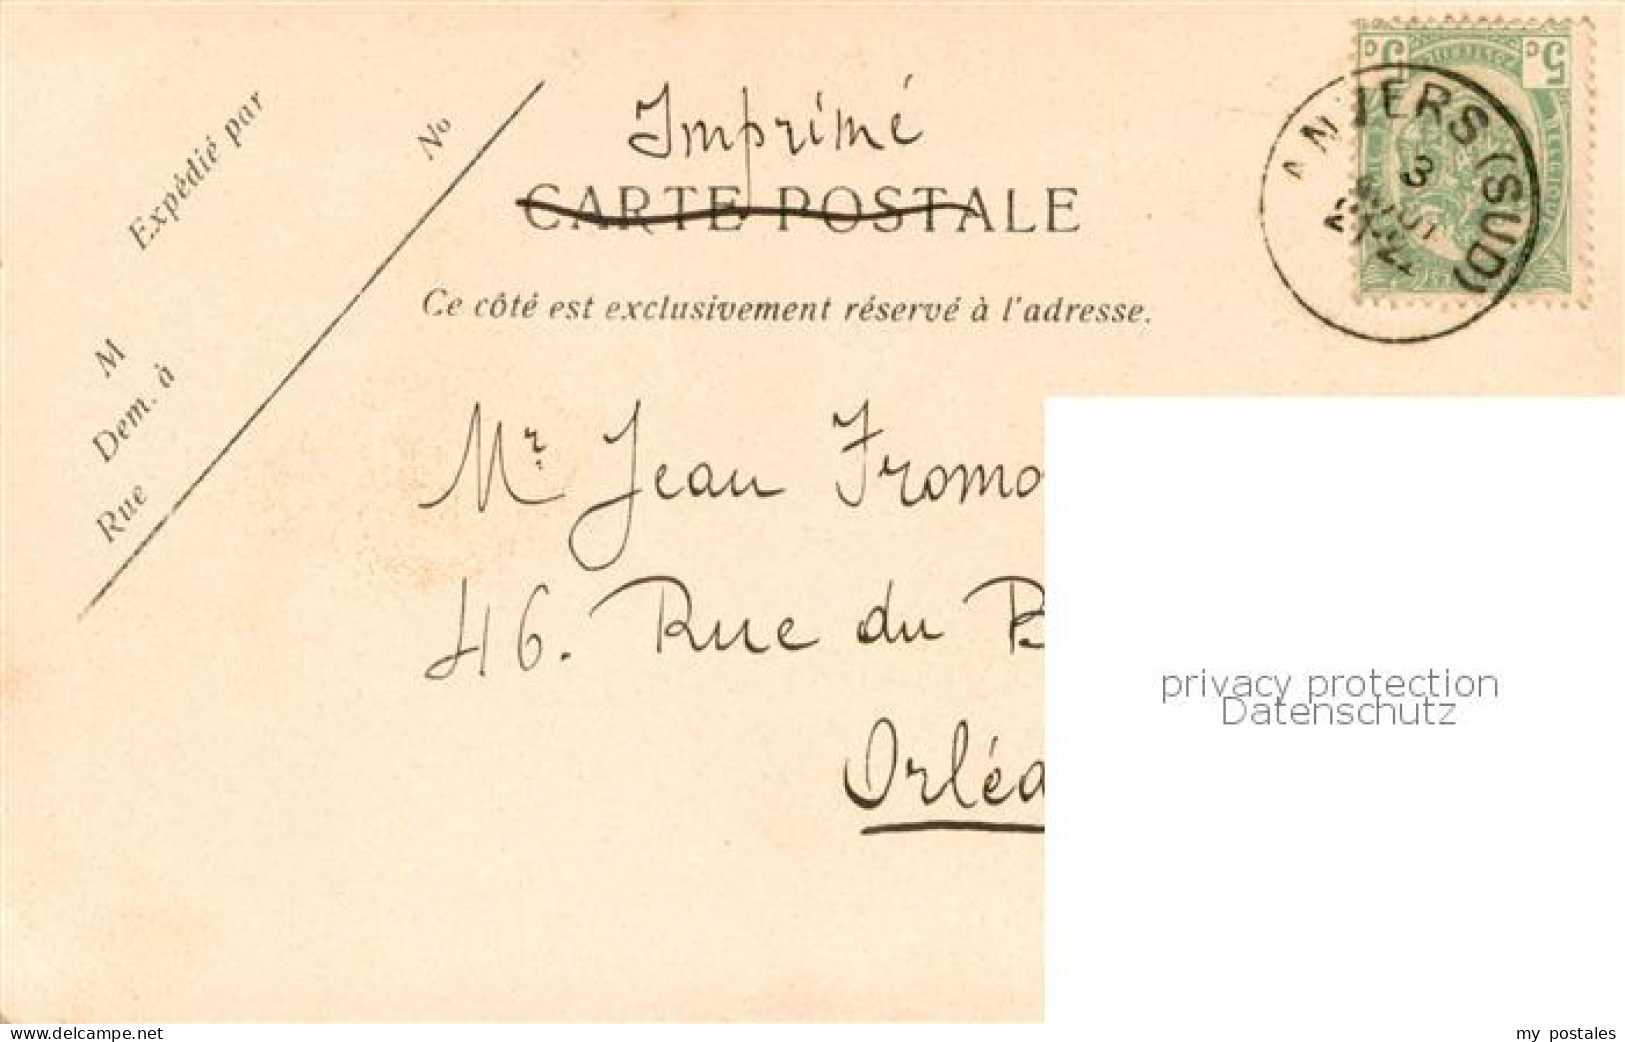 Expédié par
No
M
Dem. à
Rue
Imprimé
CARTE POSTALE
Ce côté est exclusivement réservé à l'adresse.
5c 5c
ANVERS (SUD)
3
AOUT
Mr. Jean Fromo
46. Rue du B
Orléa
privacy protection
Datenschutz
www.delcampe.net
my postales